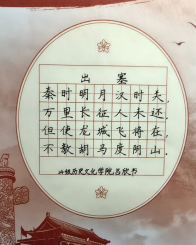 出塞
秦时明月汉时关,
万里长征人未还.
但使龙城飞将在,
不教胡马度阴山.
历史文化学院